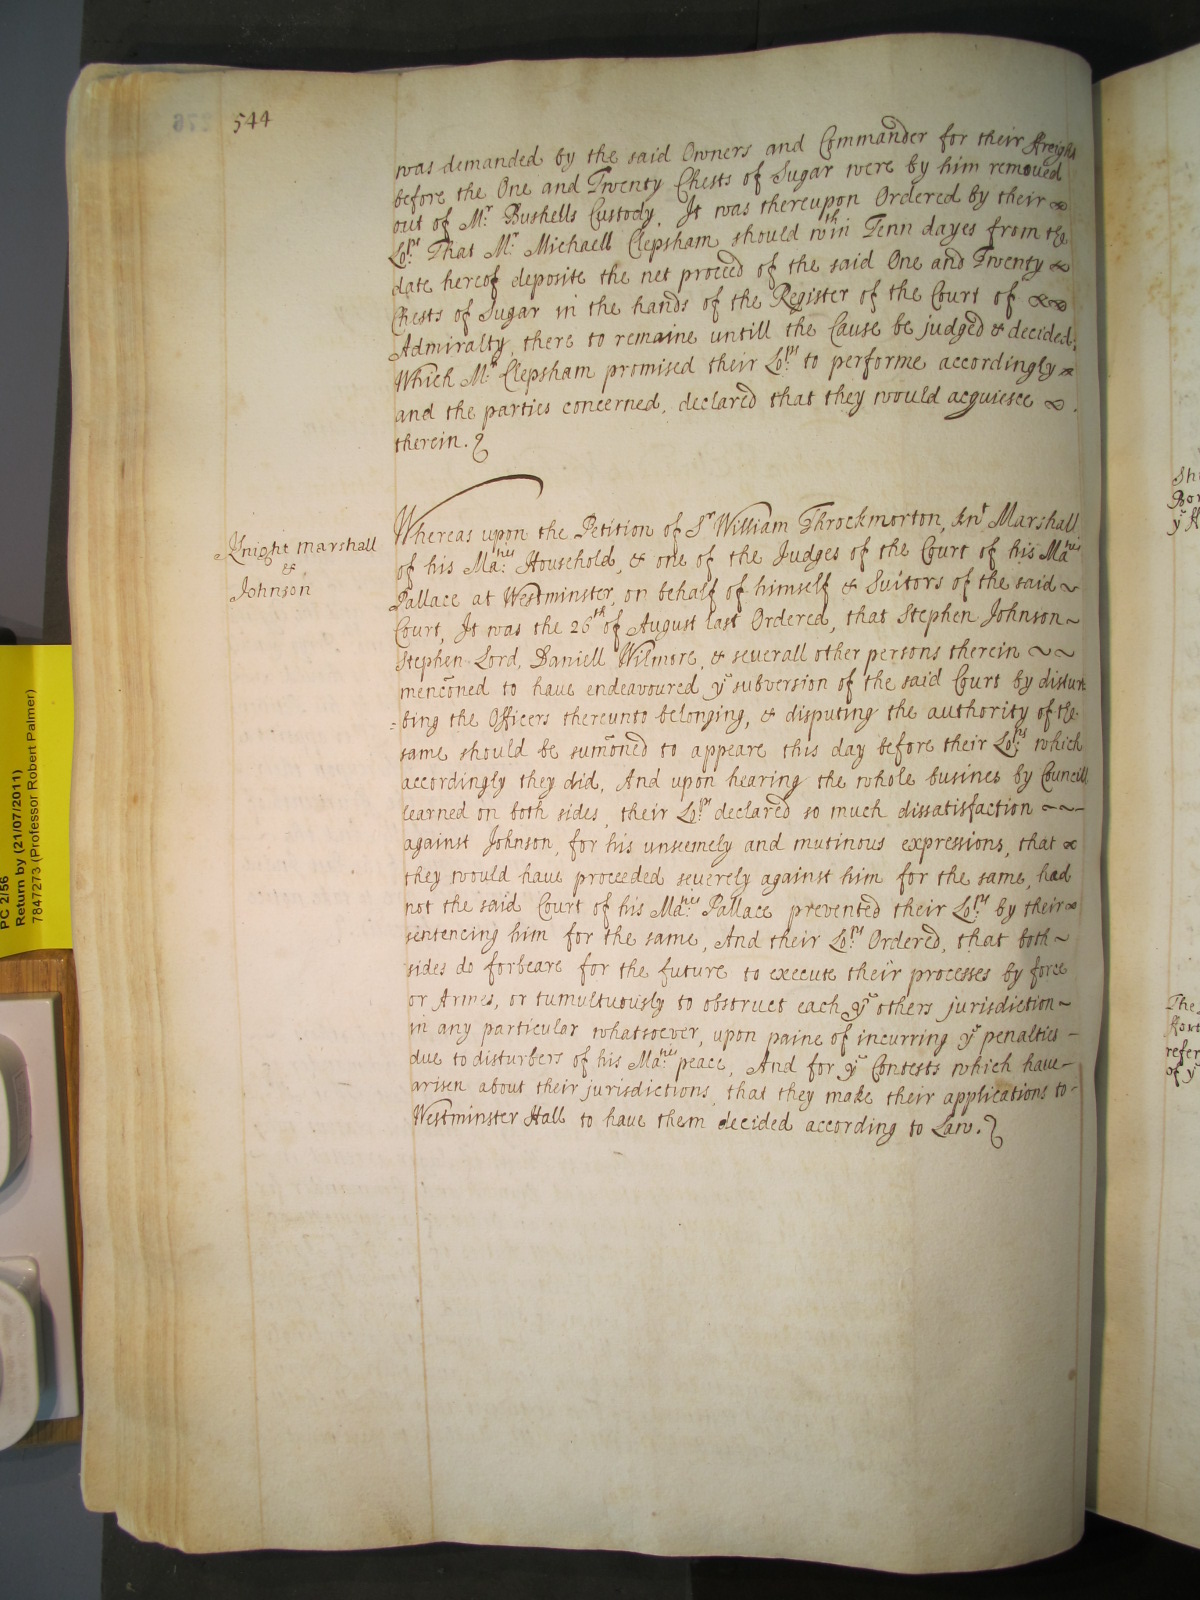 544
was demanded by the said Owners and Commander for their ffreight
before the One and Twenty Chests of Sugar were by him removed
out of Mr. Bushells Custody. It was thereupon Ordered by their
Lo:ps That Mr. Michaell Clepsham should wthin Tenn dayes from the
date hereof deposite the net proceed of the said One and Twenty
Chests of Sugar in the hands of the Register of the Court of
Admiralty, there to remaine untill the Cause be judged & decided;
Which Mr. Clepsham promised their Lo:ps to performe accordingly
and the parties concerned, declared that they would acquiesce
therein.
Knight Marshall
&
Johnson
Whereas upon the Petition of Sr William Throckmorton, Knt Marshall
of his Ma:ties Household, & one of the Judges of the Court of his Maties
Pallace at Westminster, on behalf of himself & Suitors of the said
Court, It was the 26th of August last Ordered, that Stephen Johnson
Stephen Lord, Daniell Wilmore, & severall other persons therein
menc̃oned to have endeavoured ye subversion of the said Court by distur
=bing the Officers thereunto belonging, & disputing the authority of the
same should be sum̃oned to appeare this day before their Lo:ps which
accordingly they did, And upon hearing the whole busines by Councill
learned on both sides, their Lo:ps declared so much dissatisfaction
against Johnson, for his unseemely and mutinous expressions, that
they would have proceeded severely against him for the same, had
not the said Court of his Ma:ties Pallace prevented their Lo:ps by their
sentencing him for the same, And their Lo:ps Ordered, that both
sides do forbeare for the future to execute their processes by force
or Armes, or tumultuously to obstruct each ye others jurisdiction
in any particular whatsoever, upon paine of incurring ye penalties
due to disturbers of his Ma:ties peace, And for ye Contests which have
arisen about their jurisdictions, that they make their applications to
Westminster Hall to have them decided according to Law.
PC 2/56
Return by (21/07/2011)
7847273 (Professor Robert Palmer)